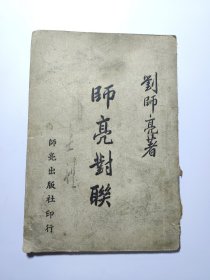 劉師亮著
師亮對聯
師亮出版社印行